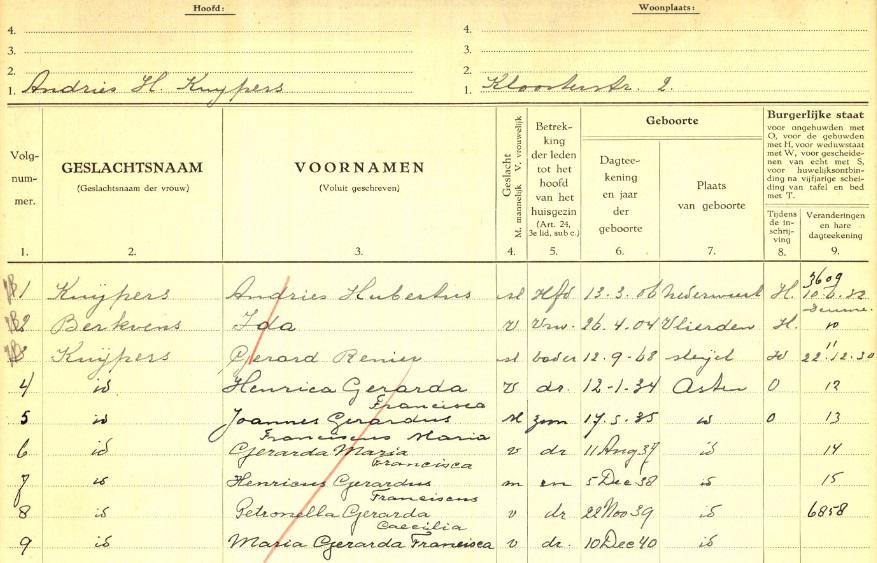 Hoofd: Woonplaats:
4. 4.
3. 3.
2. 2.
1. Andries H. Kuijpers 1. Kloosterstr. 2.
Volg-num-mer. GESLACHTSNAAM (Geslachtsnaam der vrouw) VOORNAMEN (Voluit geschreven) Geslacht M. mannelijk V. vrouwelijk Betrek-king der leden tot het hoofd van het huisgezin (Art. 24, 3e lid, sub c.) Geboorte Dagtee-kening en jaar der geboorte Plaats van geboorte Burgerlijke staat voor ongehuwden met O, voor de gehuwden met H, voor weduwstaat met W, voor gescheidenen van echt met S, voor huwelijksontbinding na vijfjarige scheiding van tafel en bed met T. Tijdens de in-schrijving Veranderingen en hare dagteekening
1. 2. 3. 4. 5. 6. 7. 8. 9.
3609
1 Kuijpers Andries Hubertus M Hfd 13.3.06 Nederweert H. 10.6.32
Deurne.
2 Berkvens Ida v Vrw. 26.4.04 Vlierden H. 10
11
Kuijpers Gerard Renier M vader 12-9-68 W 22.12.30
4 id Henrica Gerarda v dr. 12-1-34 Asten O 12
Francisca
5 id Joannes Gerardus M zoon 17.5.35 id O 13
Franciscus Maria
6 id Gerarda Maria v dr 11 Aug 37 id 14
Francisca
7 id Henricus Gerardus m zn 5 Dec 38 id 15
Franciscus
8 id Petronella Gerarda v dr 22 Nov 39 id 6858
Caecilia
9 id Maria Gerarda Francisca v dr. 10 Dec 40 id